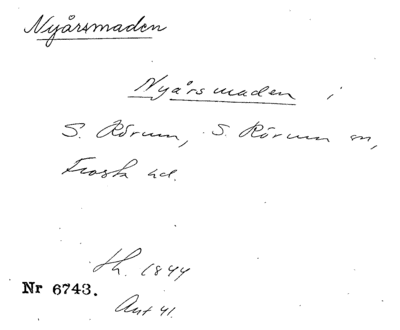 Nyårsmaden
Nyårsmaden i
S. Rörum, S. Rörum sn,
Frosta hd.
Lh. 1844
Nr 6743.
Ant 41.